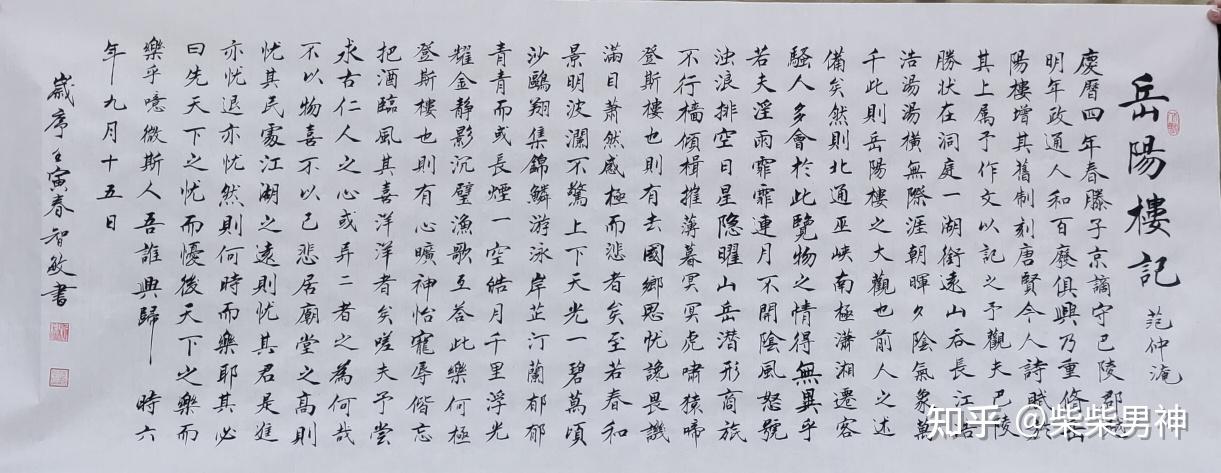 岳陽樓記
范仲淹
慶曆四年春滕子京謫守巴陵郡越
明年政通人和百廢俱興乃重修岳
陽樓增其舊制刻唐賢今人詩賦於
其上屬予作文以記之予觀夫巴陵
勝狀在洞庭一湖銜遠山吞長江浩
浩湯湯橫無際涯朝暉夕陰氣象萬
千此則岳陽樓之大觀也前人之述
備矣然則北通巫峽南極瀟湘遷客
騷人多會於此覽物之情得無異乎
若夫淫雨霏霏連月不開陰風怒號
浊浪排空日星隐曜山岳潜形商旅
不行檣傾楫摧薄暮冥冥虎嘯猿啼
登斯樓也則有去國鄉思忧讒畏譏
滿目蕭然感極而悲者矣至若春和
景明波瀾不驚上下天光一碧萬頃
沙鷗翔集錦鱗游泳岸芷汀蘭郁郁
青青而或長煙一空皓月千里浮光
耀金静影沉璧漁歌互答此樂何極
登斯樓也則有心曠神怡寵辱偕忘
把酒臨風其喜洋洋者矣嗟夫予尝
求古仁人之心或弄二者之為何哉
不以物喜不以己悲居廟堂之高則
忧其民處江湖之遠則忧其君是進
亦忧退亦忧然則何時而樂耶其必
曰先天下之忧而憂後天下之樂而
樂乎噫微斯人吾誰與歸 時六
年九月十五日
歲序壬寅春智敏書
知乎 @柴柴男神